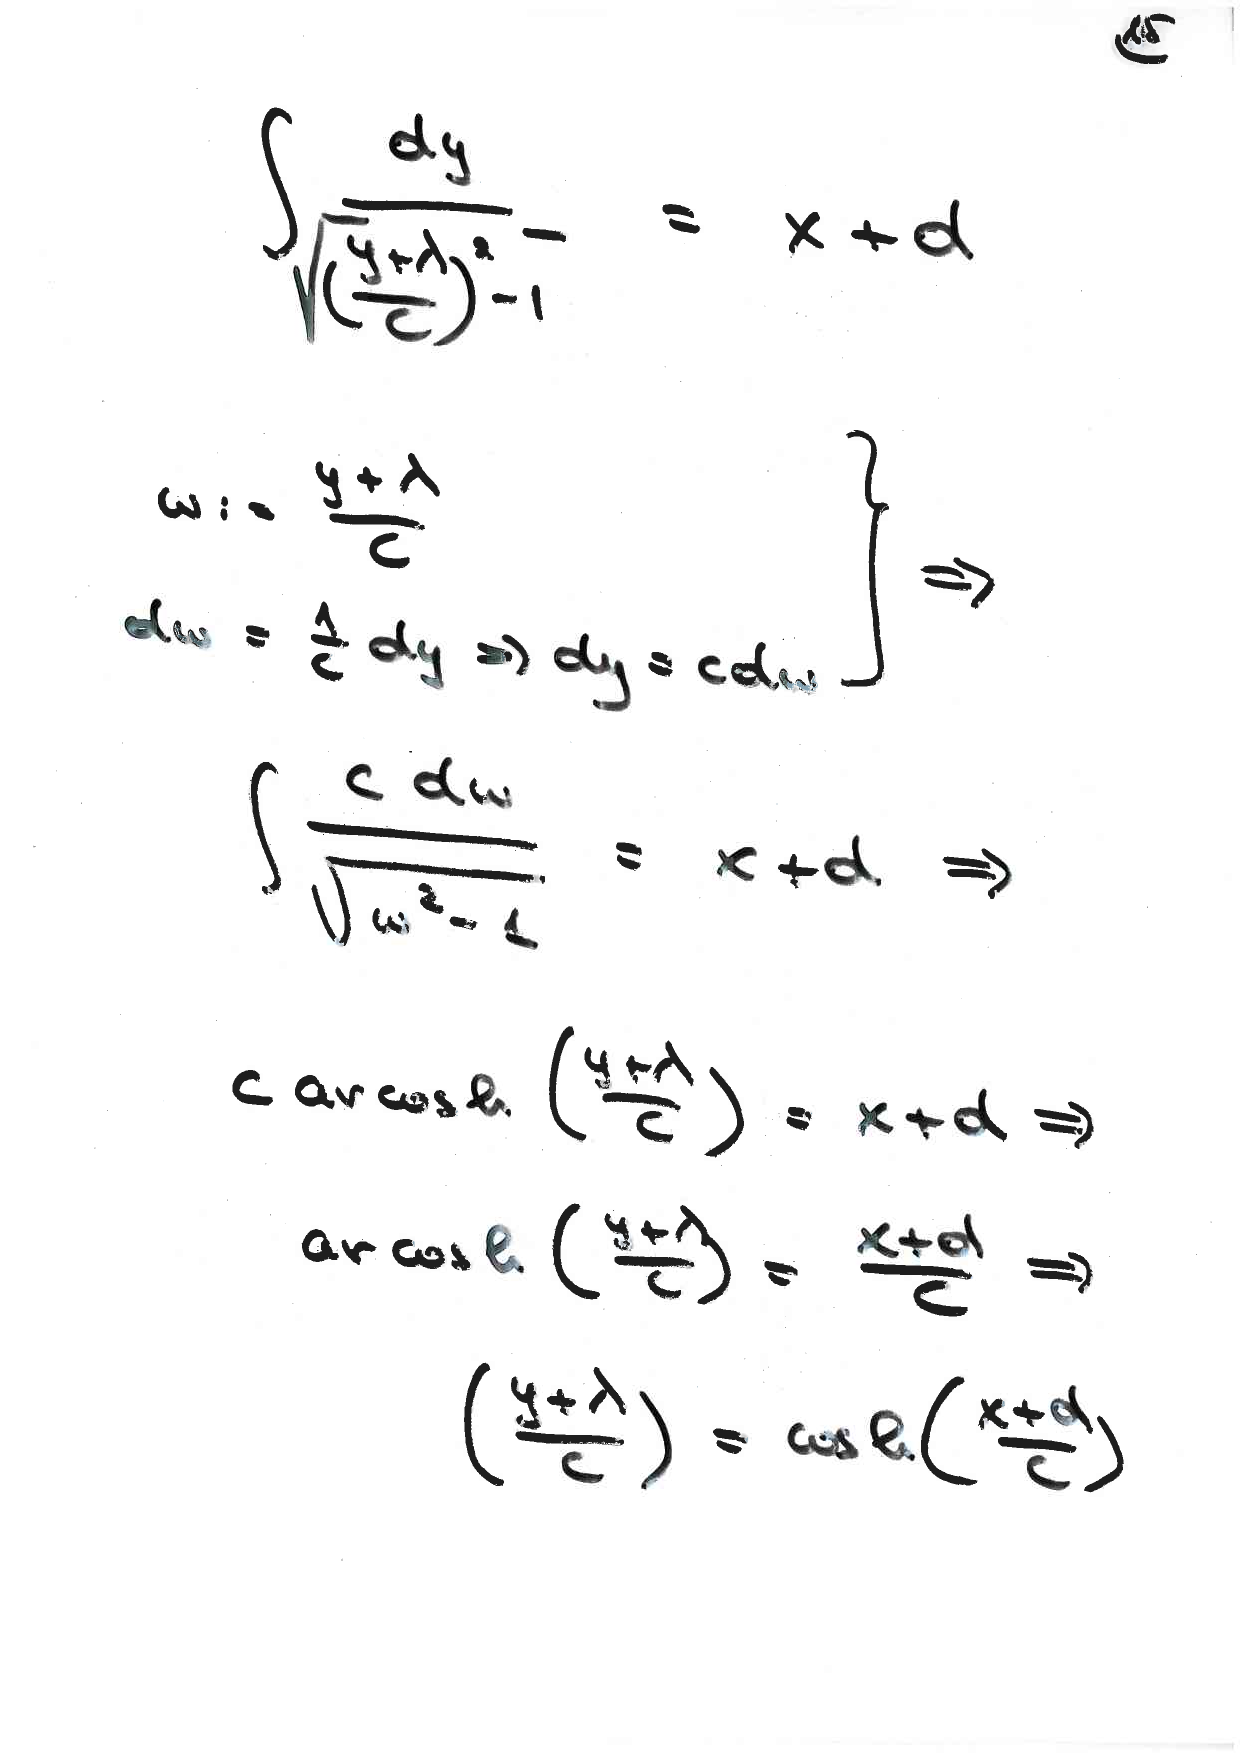 15
∫ dy / √(((y+λ)/c)² - 1) = x + d
w := (y+λ)/c
dw = 1/c dy ⇒ dy = c dw } ⇒
∫ c dw / √(w² - 1) = x + d ⇒
c arcosh ((y+λ)/c) = x + d ⇒
arcosh ((y+λ)/c) = (x+d)/c ⇒
((y+λ)/c) = cosh ((x+d)/c)